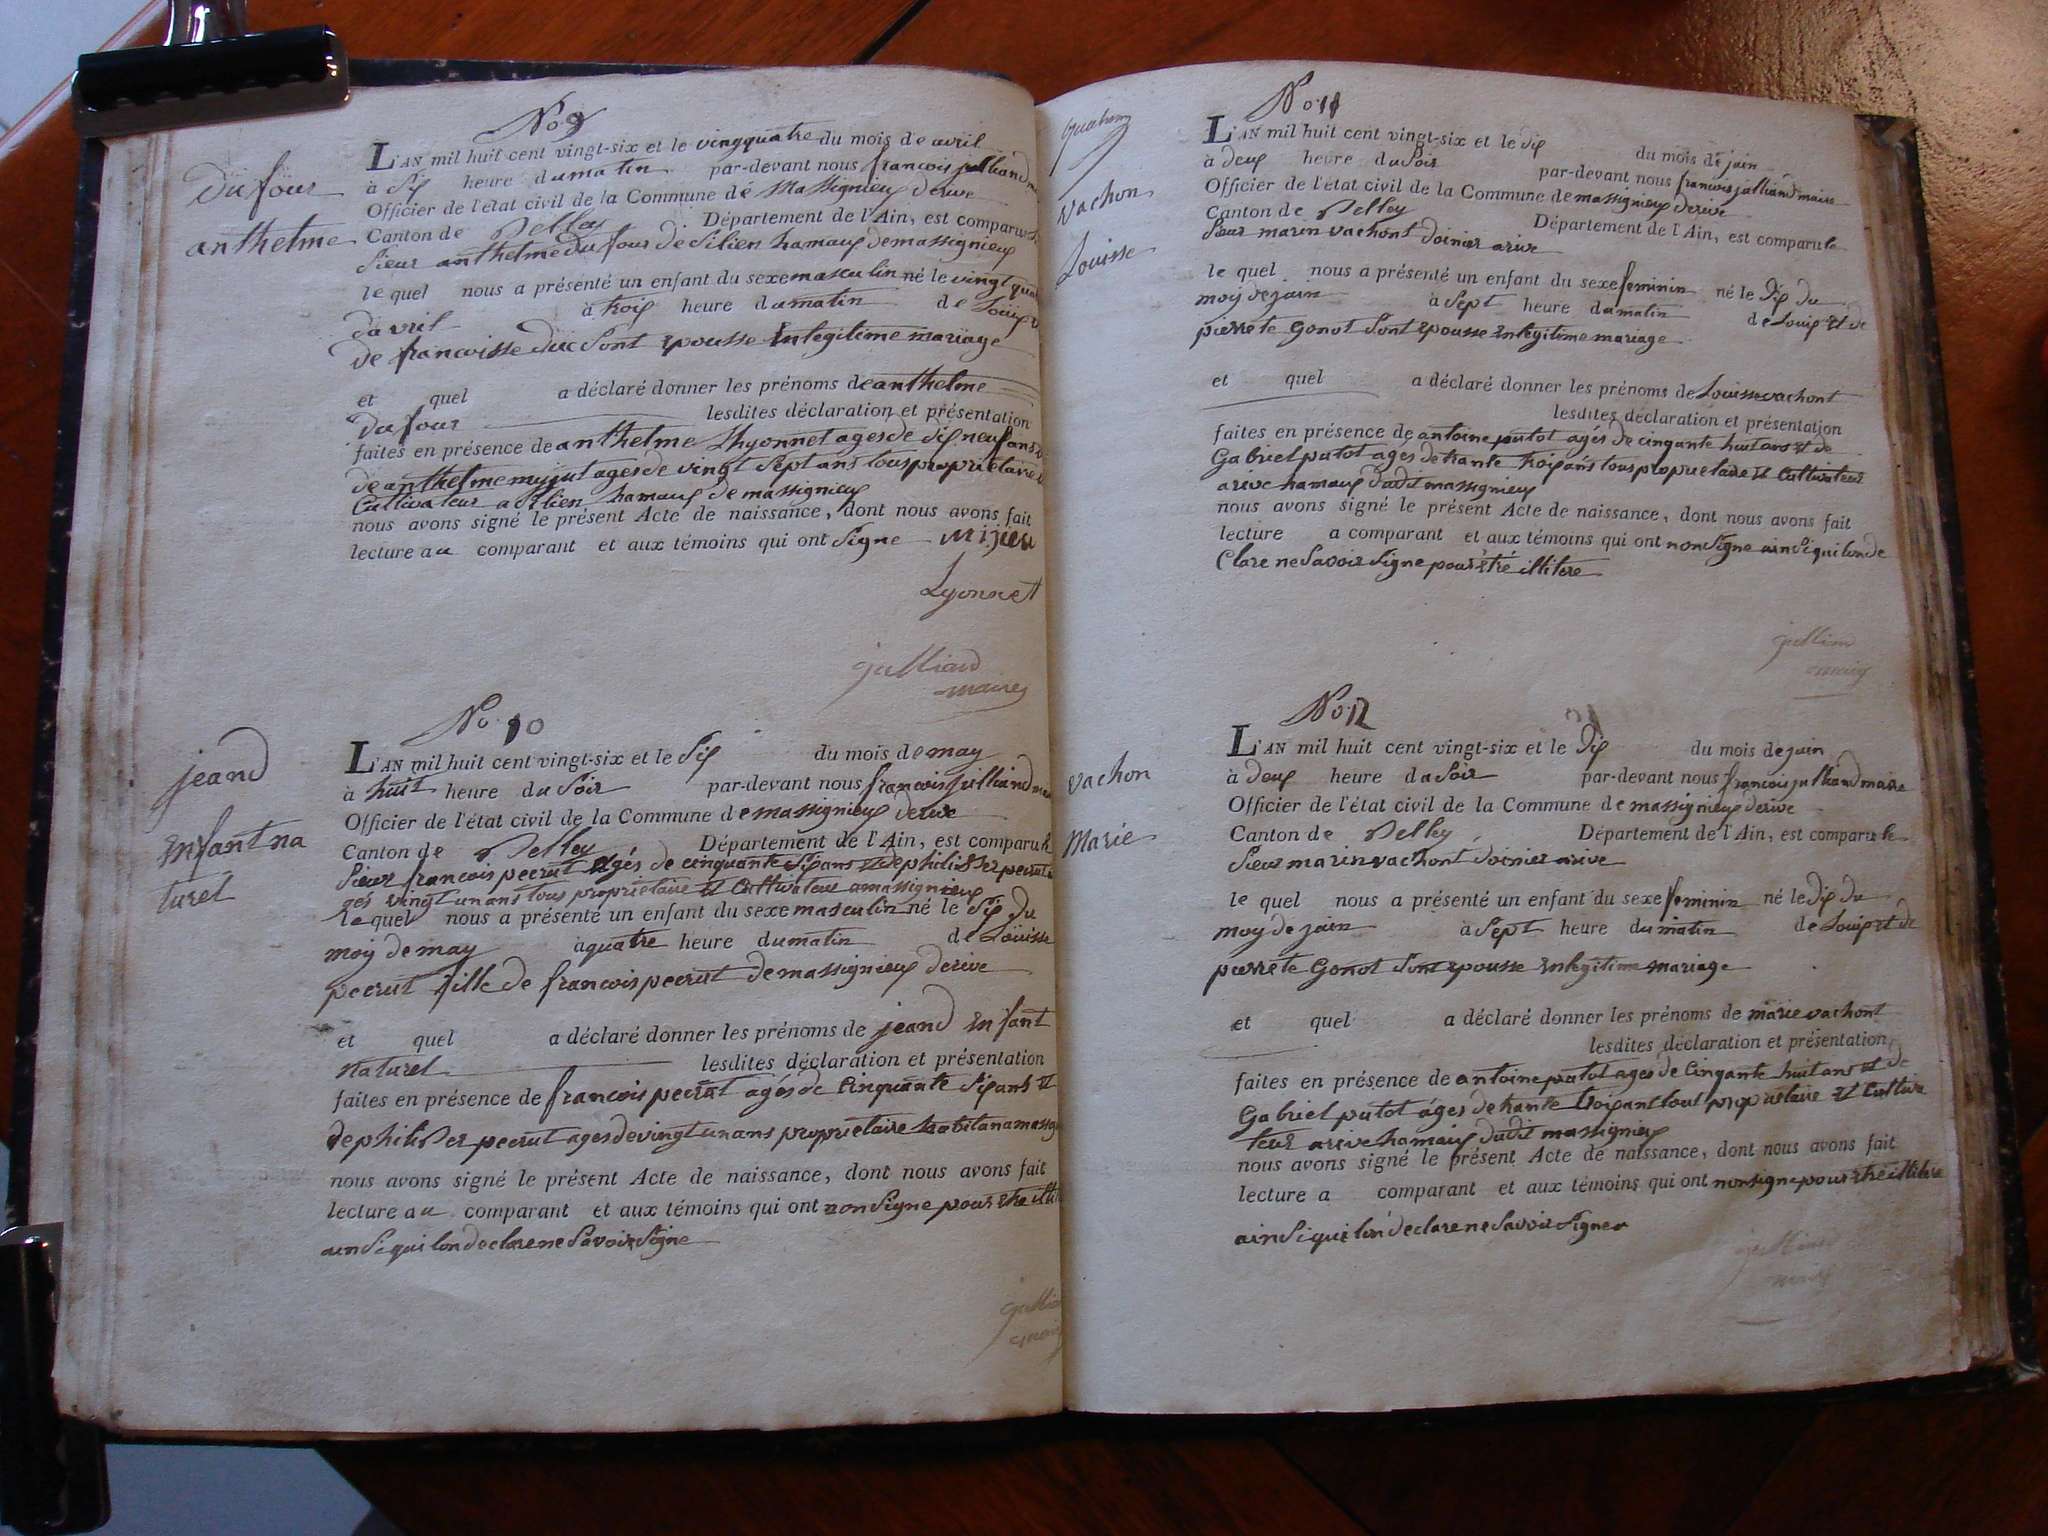 No 9
L'AN mil huit cent vingt-six et le vingquatre du mois de avril
à Six heure du matin par-devant nous francois julliand
Officier de l'état civil de la Commune de Massignieu derive
Canton de Belley Département de l'Ain, est comparu
Sieur anthelme dufour de Silien hamaux demassignieux
le quel nous a présenté un enfant du sexe masculin né le vingt
davril à trois heure du matin de Louis
de francoisse duc sont epousse Inlegitime mariage
et quel a déclaré donner les prénoms de anthelme
dufour lesdites déclaration et présentation
faites en présence de anthelme Lhyonnet agés de dix neuf ans
de anthelme mijut ages de vingt Sept ans tous proprietaire
Cultivateur a Silien hamaux de massignieux
nous avons signé le présent Acte de naissance, dont nous avons fait
lecture au comparant et aux témoins qui ont Signe Mijieu
Lyonnett
julliand
maire
dufour
anthelme
No. 10
L'AN mil huit cent vingt-six et le Six du mois de may
à huit heure du Soir par-devant nous francois julliand
Officier de l'état civil de la Commune de massignieux derive
Canton de Belley Département de l'Ain, est comparu le
Sieur francois pecrut agés de cinquante Sixans et de philiber pecrut
ages vingt unans tous proprietaire et Cultivateur amassignieux
le quel nous a présenté un enfant du sexe masculin né le Six du
moy de may à quatre heure du matin de Louisse
pecrut fille de francois pecrut de massignieux derive
et quel a déclaré donner les prénoms de jeand enfant
naturel lesdites déclaration et présentation
faites en présence de francois pecrut agés de Cinquante Sixans et
dephiliber pecrut ages devingt unans proprietaire habitanamassig
nous avons signé le présent Acte de naissance, dont nous avons fait
lecture au comparant et aux témoins qui ont non Signe pour etre
ainsi quilon declare ne Savoir Signe
jeand
enfant na
turel
No. 11
L'AN mil huit cent vingt-six et le dix du mois de juin
à deux heure du Soir par-devant nous francois julliand maire
Officier de l'état civil de la Commune de massignieux derive
Canton de Belley Département de l'Ain, est comparu le
Sieur marin vachont doinier arive
le quel nous a présenté un enfant du sexe feminin né le dix du
moy de juin à Sept heure du matin de Louis et de
pierrete Gonot Sont epousse enlegitime mariage
et quel a déclaré donner les prénoms de Louisse vachont
lesdites déclaration et présentation
faites en présence de antoine putot agés de cinquante huit ans et de
Gabriel putot ages de trante troisans tous proprietaire et Cultivateur
arive hamaux dudit massignieux
nous avons signé le présent Acte de naissance, dont nous avons fait
lecture a comparant et aux témoins qui ont non Signe ainsi quilonde
Clare ne Savoir Signe pour être illitere
julliand
maire
vachon
Louisse
No. 12
L'AN mil huit cent vingt-six et le Dix du mois de juin
à deux heure du Soir par-devant nous francois julliand maire
Officier de l'état civil de la Commune de massignieux derive
Canton de Belley Département de l'Ain, est comparu le
Sieur marin vachont doinier arive
le quel nous a présenté un enfant du sexe feminin né le dix du
moy de juin à Sept heure du matin de Louis et de
pierrete Gonot Sont epousse enlegitime mariage
et quel a déclaré donner les prénoms de marie vachont
lesdites déclaration et présentation
faites en présence de antoine putot ages de Cinquante huit ans et de
Gabriel putot âges de trante troisant tous proprietaire et Cultiva
teur arive hamaux dudit massignieux
nous avons signé le présent Acte de naissance, dont nous avons fait
lecture a comparant et aux témoins qui ont non signe pour etre illitere
ainsi quilon declare ne Savoir Signer
julliand
maire
vachon
Marie